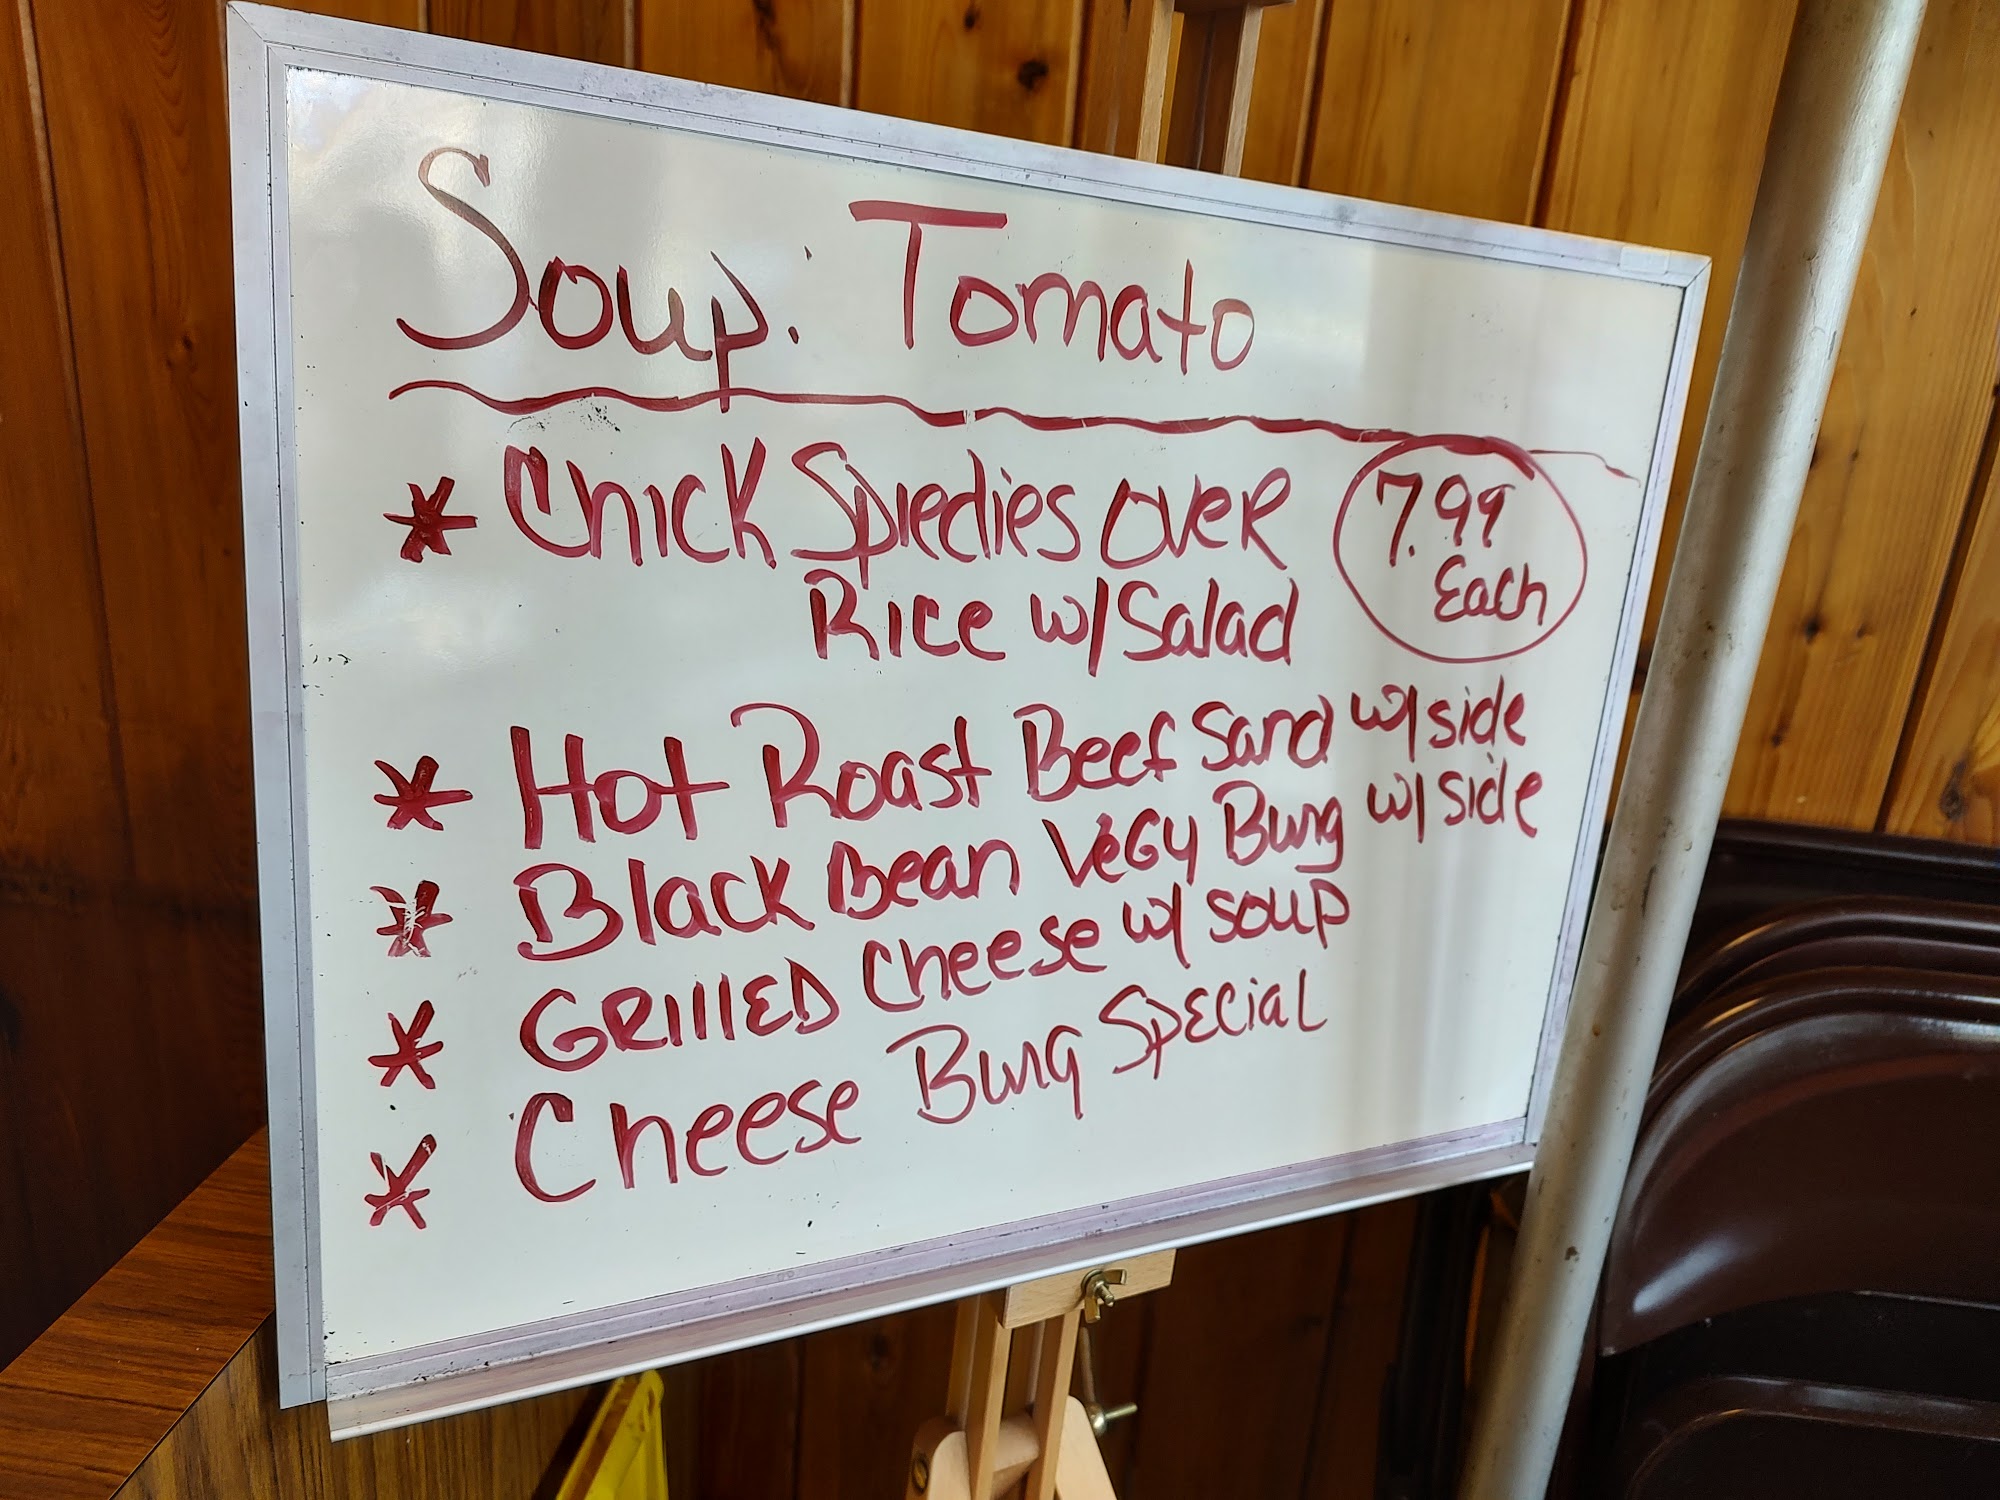 Soup: Tomato
* Chick Spiedies over 7.99
Rice w/Salad Each
* Hot Roast Beef Sand w/side
* Black Bean VeGy Burg w/side
* GRillED Cheese w/ soup
* Cheese Burg Special